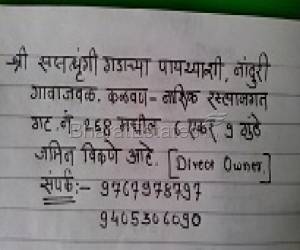 श्री सप्तशृंगी गडाच्या पायथ्याशी, नांदुरी
गावाजवळ. कळवण - नाशिक रस्त्यालगत
गट. नं. 268 मधील 6 एकर 9 गुंठे
जमिन विकणे आहे. [Direct Owner.]
संपर्क :- 9767978797
9405306090